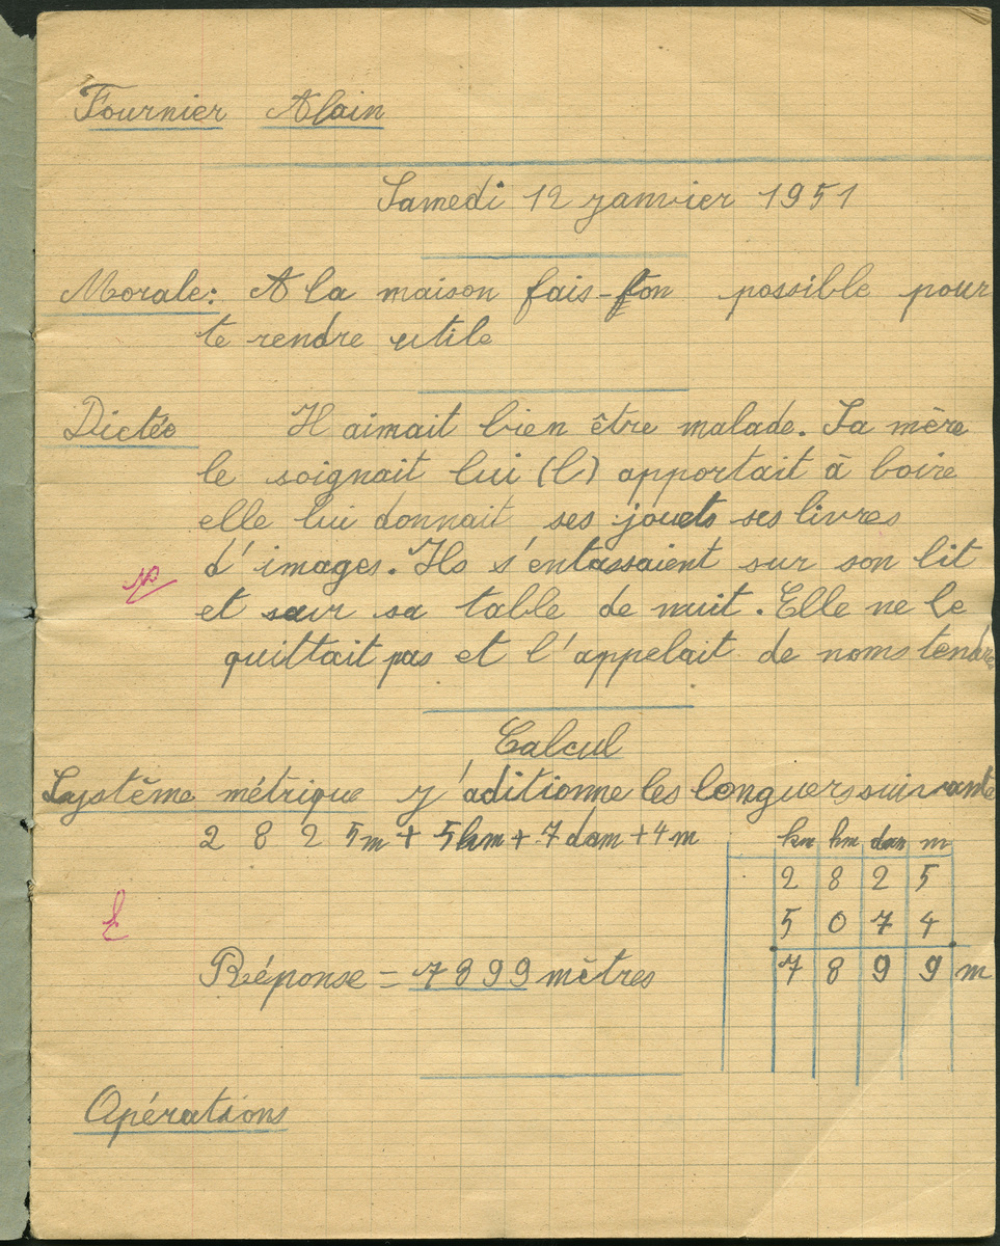 Fournier Alain
Samedi 12 janvier 1951
Morale: A la maison fais-ton possible pour
te rendre utile
Dictée Il aimait bien être malade. Sa mère
le soignait lui (l) apportait à boire
elle lui donnait ses jouets ses livres
d'images. Ils s'entassaient sur son lit
et sur sa table de nuit. Elle ne le
quittait pas et l'appelait de noms tendre
Calcul
Système métrique j'aditionne les longuers suivante
2 8 2 5m + 5km + 7 dam + 4 m
km hm dam m
2 8 2 5
5 0 7 4
7 8 9 9 m
Réponse = 7899 mètres
Opérations